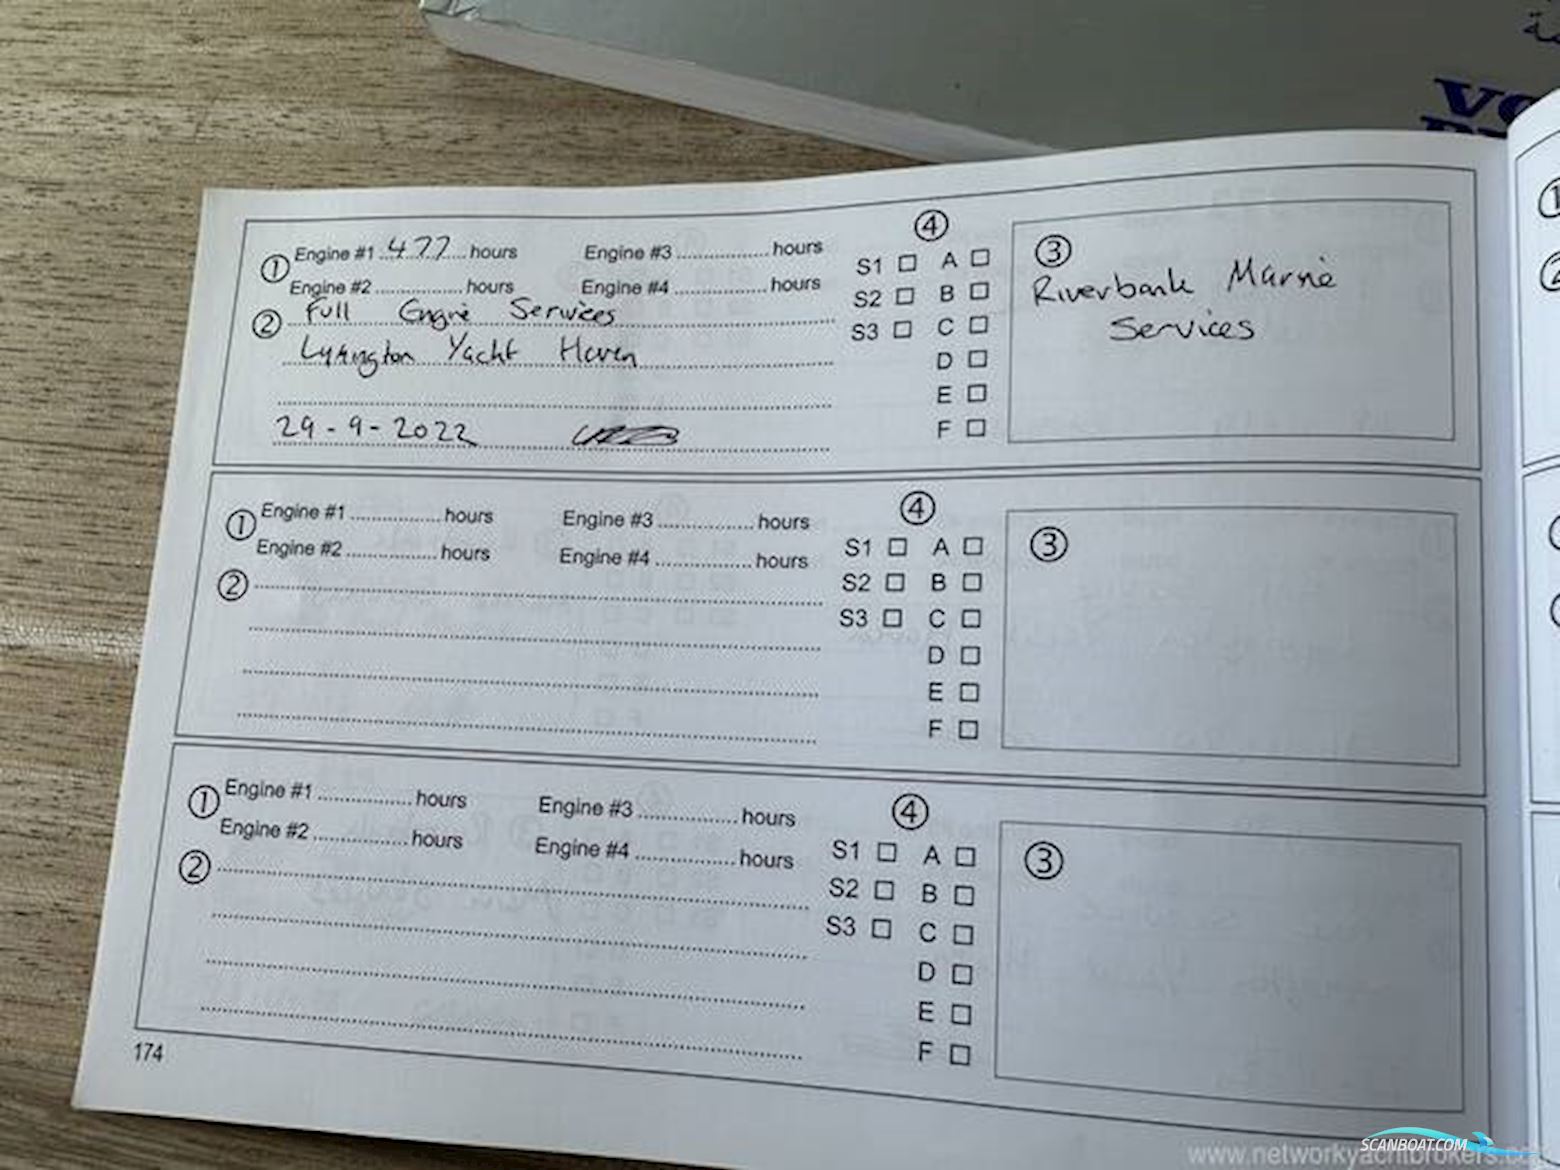 VO
① Engine #1 477 hours Engine #3 ............ hours
Engine #2 ............ hours Engine #4 ............ hours
② Full Engine Services
Lymington Yacht Haven
29-9-2022
④
S1 □ A □
S2 □ B □
S3 □ C □
D □
E □
F □
③
Riverbank Marine
Services
① Engine #1 ............ hours Engine #3 ............ hours
Engine #2 ............ hours Engine #4 ............ hours
②
④
S1 □ A □
S2 □ B □
S3 □ C □
D □
E □
F □
③
① Engine #1 ............ hours Engine #3 ............ hours
Engine #2 ............ hours Engine #4 ............ hours
②
④
S1 □ A □
S2 □ B □
S3 □ C □
D □
E □
F □
③
174
SCANBOAT.COM
www.networkyachtbrokers.c